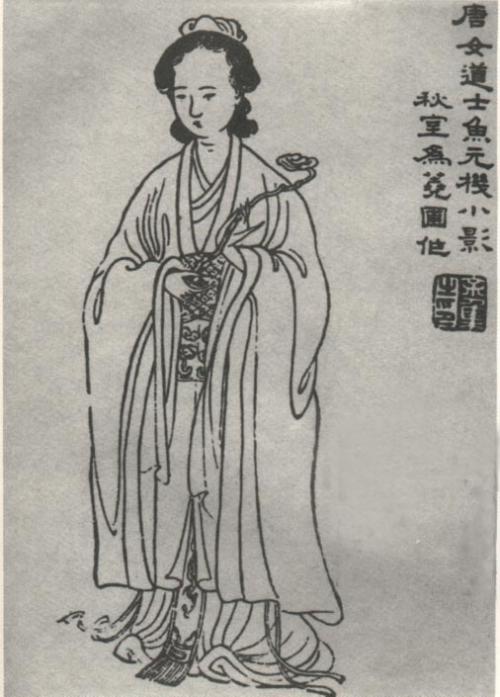 唐女道士魚元機小影
秋室爲蕘圃作